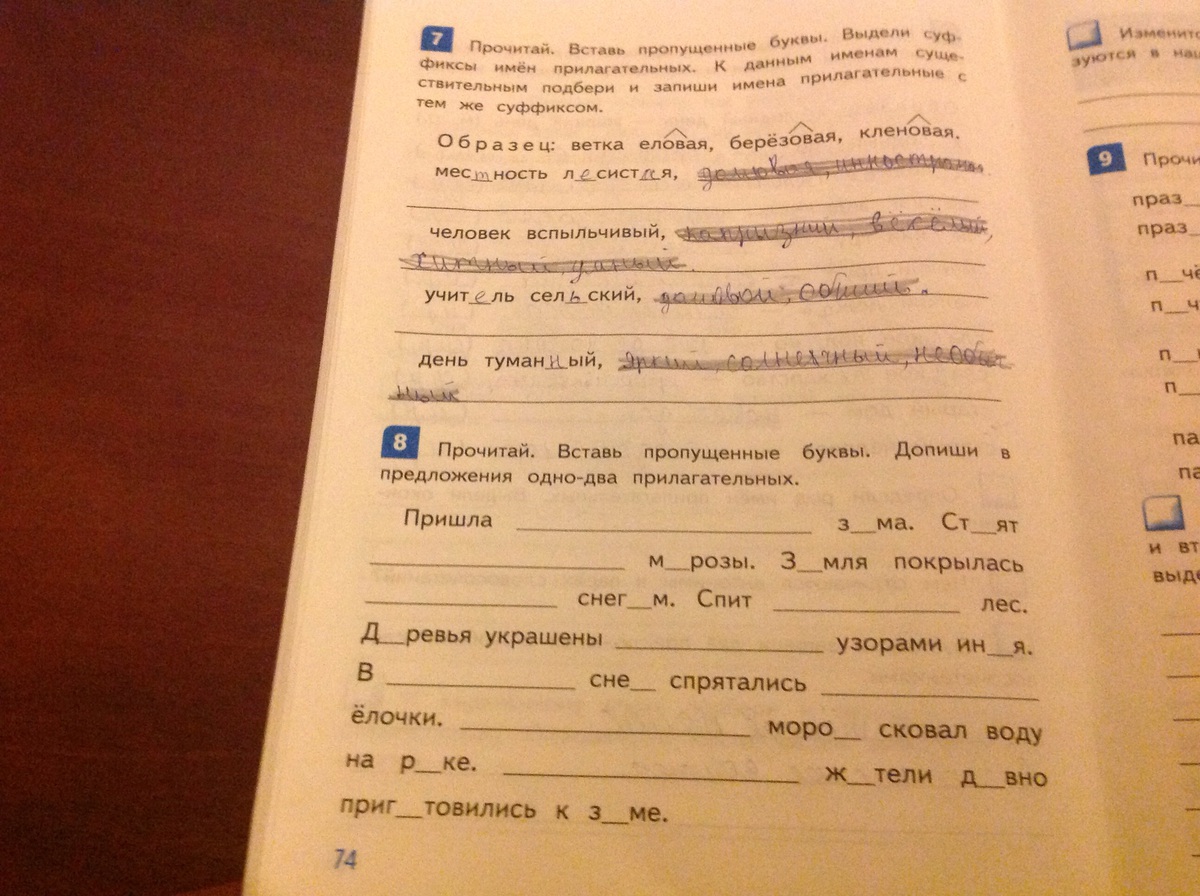 7 Прочитай. Вставь пропущенные буквы. Выдели суф-
фиксы имён прилагательных. К данным именам суще-
ствительным подбери и запиши имена прилагательные с
тем же суффиксом.
Образец: ветка еловая, берёзовая, кленовая.
местность лесистая,
человек вспыльчивый, капризний, весёлый,
учитель сельский, домовой,
день туманный, яркий, солнечный,
ный
8 Прочитай. Вставь пропущенные буквы. Допиши в
предложения одно-два прилагательных.
Пришла ____ з__ма. Ст__ят
____ м__розы. З__мля покрылась
____ снег__м. Спит ____ лес.
Д__ревья украшены ____ узорами ин__я.
В ____ сне__ спрятались ____
ёлочки. ____ моро__ сковал воду
на р__ке. ____ ж__тели д__вно
приг__товились к з__ме.
74
Изменит
зуются в наш
9 Прочи
праз__
праз__
п__чё
п__ч
п__
п__
па
па
и вт
выде